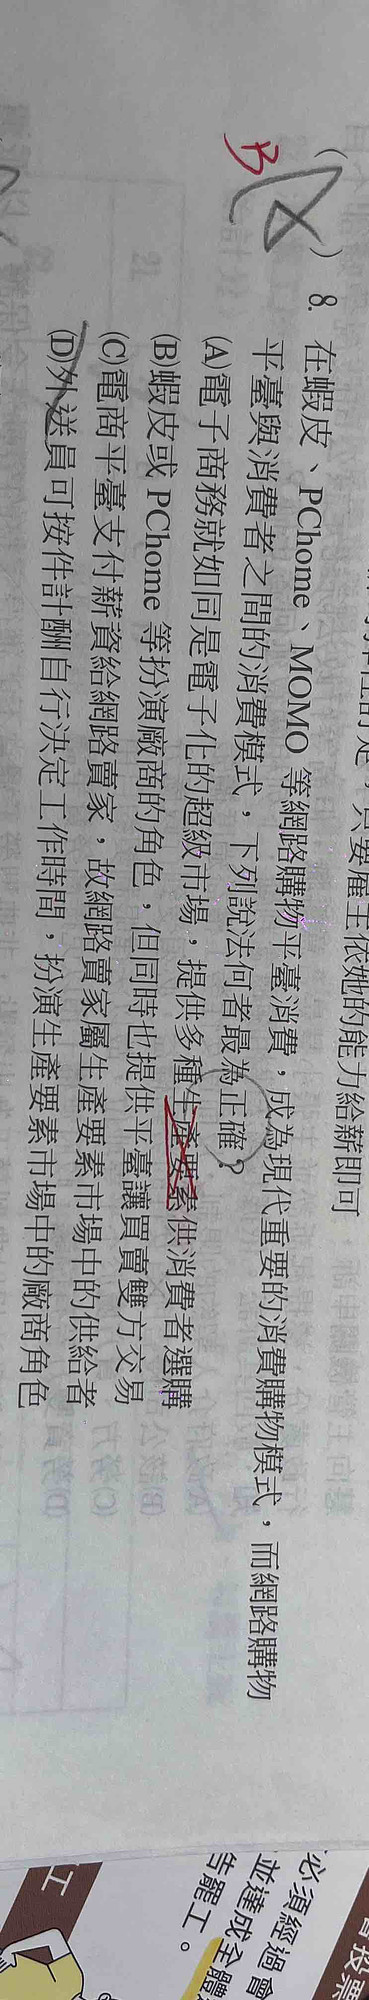 只要雇主依她的能力給薪即可
B
8. 在蝦皮、PChome、MOMO 等網路購物平臺消費，成為現代重要的消費購物模式，而網路購物
平臺與消費者之間的消費模式，下列說法何者最為正確？
(A)電子商務就如同是電子化的超級市場，提供多種生產要素供消費者選購
(B)蝦皮或 PChome 等扮演廠商的角色，但同時也提供平臺讓買賣雙方交易
(C)電商平臺支付薪資給網路賣家，故網路賣家屬生產要素市場中的供給者
(D)外送員可按件計酬自行決定工作時間，扮演生產要素市場中的廠商角色
必須經過會
並達成全體
告罷工。
工
投票